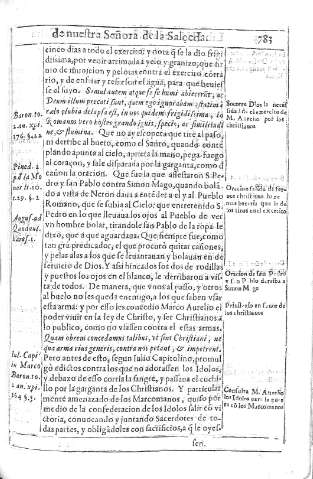 de nuestra Señora de la Salceda. 783
cinco dias a todo el exercito; y nota q̃ se la dio frigi
dissima, por venir arrimada a yelo y granizo, que hi
zo de
y pelotas contra el exercito cõtra
rio, y de enfriar y refrescar el agua, para que
se el suyo. Simul autem atque se
humi abiecerũt, ac
Deum illum precati sunt, quem ego ignorabam
è
cœlo pluvia delapsa est, in nos quidem frigidissima, in
Romanos vero hostes grando ignis,
& fulmina. Que no ay escopeta que tire al passo,
ni derribe al bueto, como el Santo, quando conte
plando apunta al cielo, aprieta la mano, pega fuego
al coraçon, y sale disparada por la garganta, como d
cañon la oracion. Que fue la que assestaron S. Pe
dro y san Pablo contra Simon Mago, quando bolã
do a vista de Neron daua a entẽder a el y al Pueblo
Romano, que se subia al Cielo: que entretenido S.
Pedro en lo que lleuaua los ojos al Pueblo de ver
vn hombre bolar, tirandole san Pablo de la ropa le
dixo, que a que aguardaua. Que siempre fue, como
tan grã predicador, el que procurò quitar
y pelas alas a los que se leuantauan y bolauan en de
seruicio de Dios. Y assi hincados los dos de rodillas
y puestos los ojos en el blanco, le derribaron a vis
ta de todos. De manera, que vnos al passo, y otros
al buelo no les queda enemigo, a los que saben vsar
esta arma: y por esso les concedio Marco Aurelio el
poder viuir en la ley de Christo, y ser Christianos a
lo publico, como no viassen contra el estas armas.
Quam obrem concedamus talibus, vt sint Christiani, ne
que arma eius generis, contra nos petant, & impetrent.
Pero antes de esto, segun Iulio Capitolino, promul
gò edictos contra los que no adorassen los Idolos,
y debaxo de esso corria la sangre, y passaua el cochi
llo por la garganta de los Christianos. Y particular
mente amenazado de los Marcomanos, quiso por
medio de la confederacion de los Idolos salir cõ vi
ctoria, conuocando y juntando Sacerdotes de to
das partes, y obligãdoles con sacrificios, a q̃ le oyes
sen
Baron. 10.
2. an. xpi.
176. §.22
Pined. 2
p̃ d la Mo
nar li. 10.
c. 29. §. 2
August. ad
Quoduul.
Iul. Capi
in Marco
Baron. to.
2. an. xpi.
164 §. 3.
Socorre Dios
M. Aurelio por los
christianos
Oracion
Oracion de san Pedro
y san Pablo derriba a
Simon M go
Priuilegio en fauor de
los christianos
Consulta M. Aurelio
los Idolos para la guer
ra cõ los Marcomanos